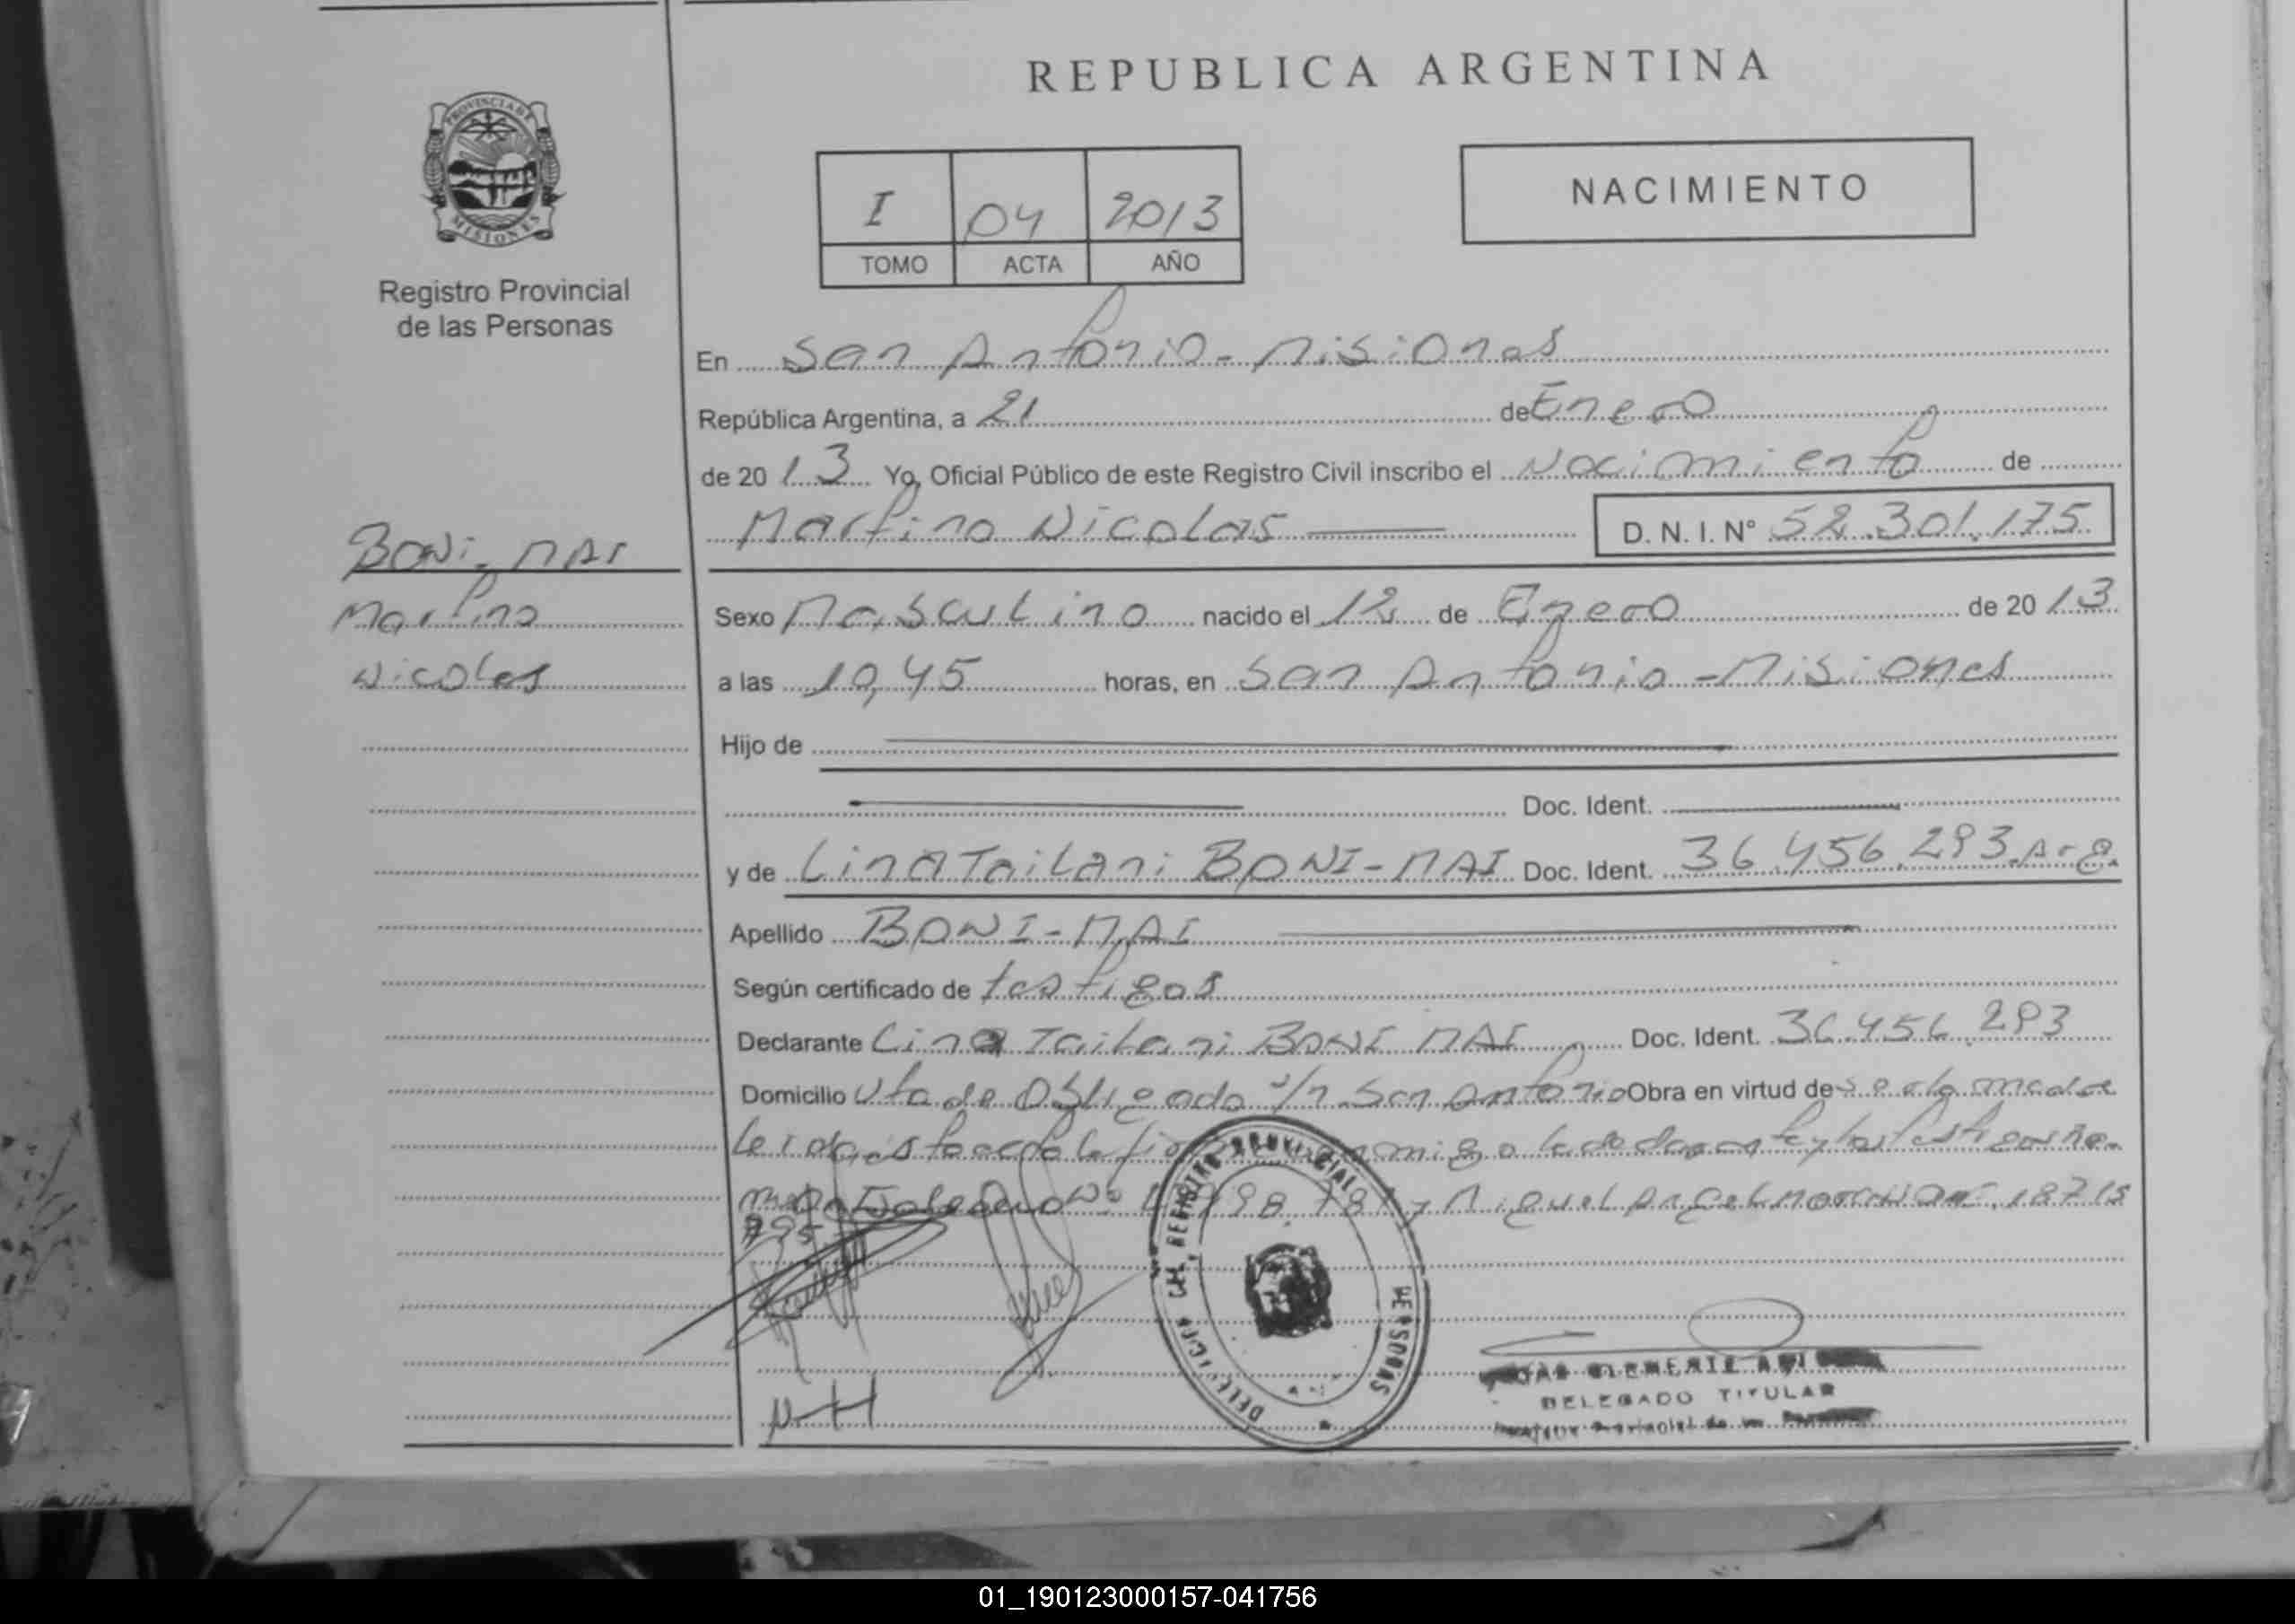 REPUBLICA ARGENTINA
PROVINCIA DE
MISIONES
Registro Provincial
de las Personas
I 04 2013
TOMO ACTA AÑO
NACIMIENTO
En San Antonio - Misiones
República Argentina, a 21 de Enero
de 2013 Yo, Oficial Público de este Registro Civil inscribo el Nacimiento de
Martino Nicolas D. N. I. Nº 52.301.175
BONI-MAI
Martino
Nicolas
Sexo Masculino nacido el 12 de Enero de 2013
a las 10,45 horas, en San Antonio - Misiones
Hijo de
Doc. Ident.
y de Lina Tailani BONI-MAI Doc. Ident. 36.456.293 Arg.
Apellido BONI-MAI
Según certificado de testigos
Declarante Lina Tailani BONI MAI Doc. Ident. 36.456.293
Domicilio Uta de Obligado s/n San Antonio Obra en virtud de ser la madre
Leida esta acta la conmigo la declarante y los testigos
y Miguel Angel 18715
795
REGISTRO PROVINCIAL
PERSONAS
DELEGADO TITULAR
01_190123000157-041756